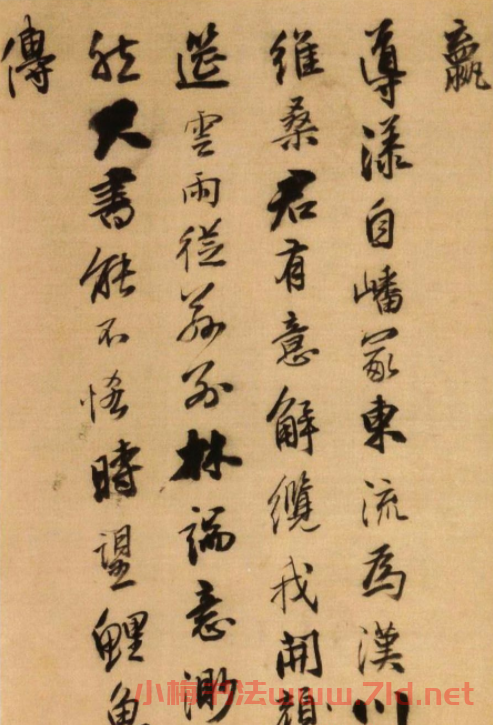 導漾自嶓冢東流為漢川
維桑君有意解纜我開
筵雲雨從茲別林端意渺
然尺書能不悋時望鯉魚
傳
小梅书法www.7ld.net